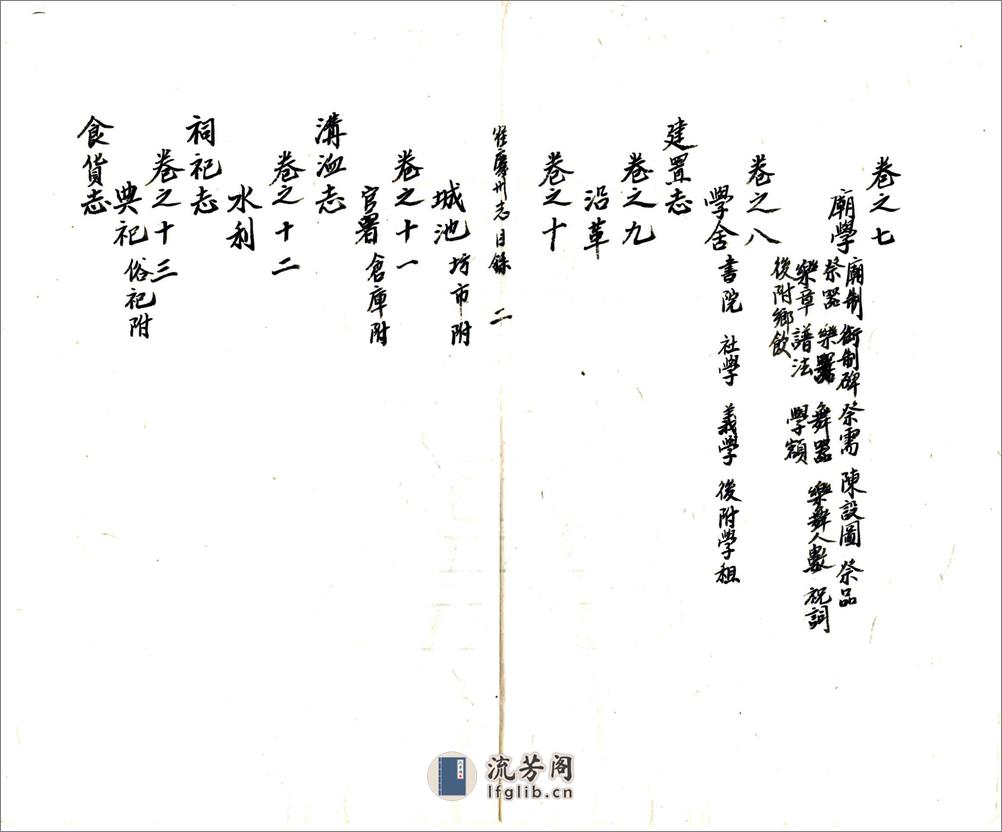 卷之七
廟學
廟制 御制碑 祭需 陳設圖 祭品
祭器 樂器 舞器 樂舞人數 祝詞
樂章譜法 學額
後附鄉飲
卷之八
學舍 書院 社學 義學 後附學租
建置志
卷之九
沿革
卷之十
崔慶州志目錄 二
城池 坊市附
卷之十一
官署 倉庫附
溝洫志
卷之十二
水利
祠祀志
卷之十三
典祀 俗祀附
食貨志
流芳阁
lfglib.cn